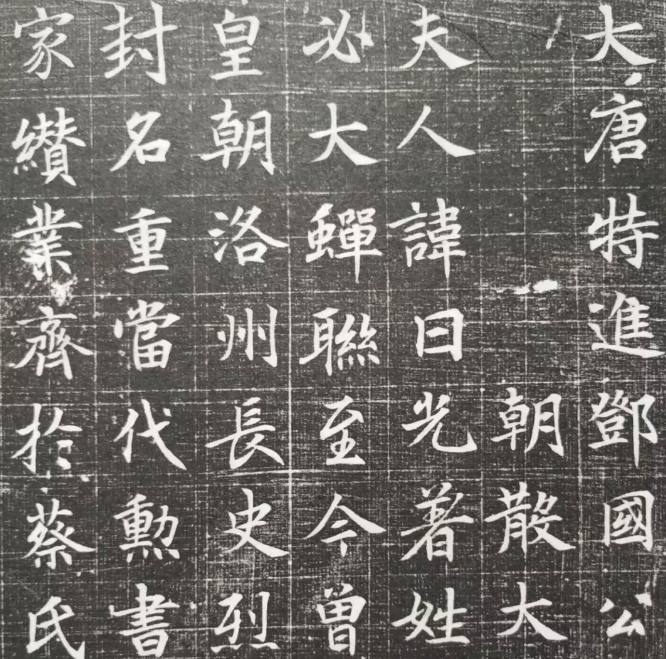 大唐特進鄧國公
朝散大
夫人諱曰光著姓
必大蟬聯至今曾
皇朝洛州長史烈
封名重當代勲書
家纘業齊於蔡氏